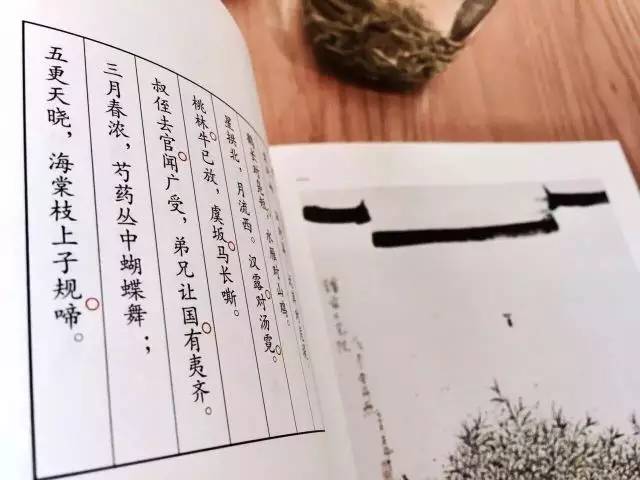 鹤长对凫短，水雁对山鸡。
星拱北，月流西。汉露对汤霓。
桃林牛已放，虞坂马长嘶。
叔侄去官闻广受，弟兄让国有夷齐。
三月春浓，芍药丛中蝴蝶舞；
五更天晓，海棠枝上子规啼。